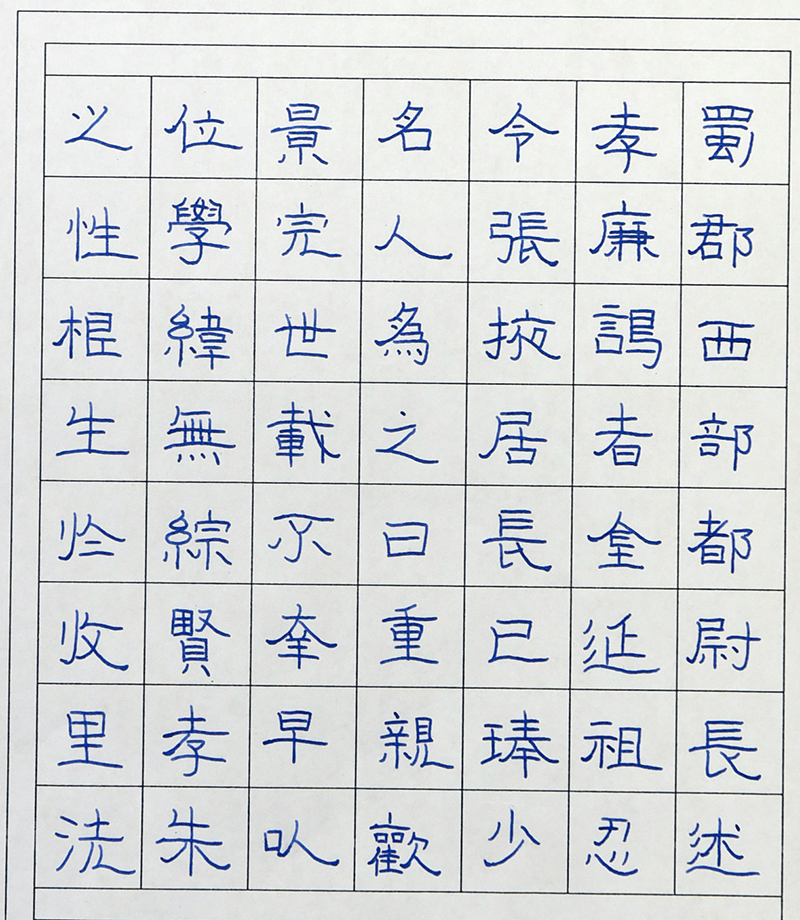 蜀郡西部都尉長述
孝廉謁者延祖忍
令張掖居長已琫少
名人為之曰重親歡
景完世載不早以
位學緯無綜賢孝朱
性根生於收里法